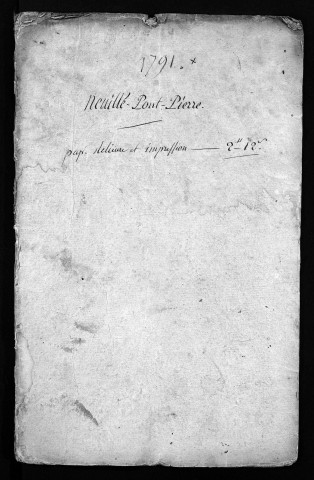 1791.
Neuillé-Pont-Pierre.
pap. reliure et impression — 2ᵗᵗ 12ˢ